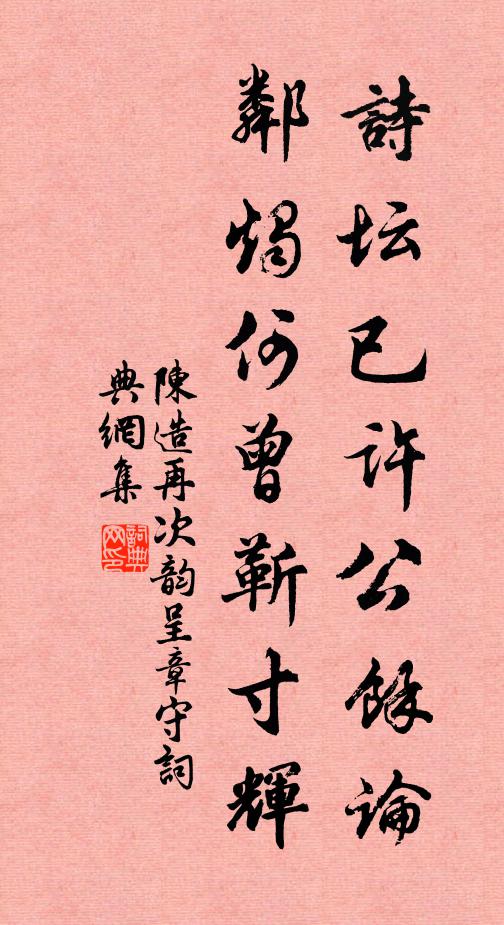 詩坛已许公餘論
鄰燭何曾靳寸輝
陳造再次韵呈章守詞
典網集
詞典网印